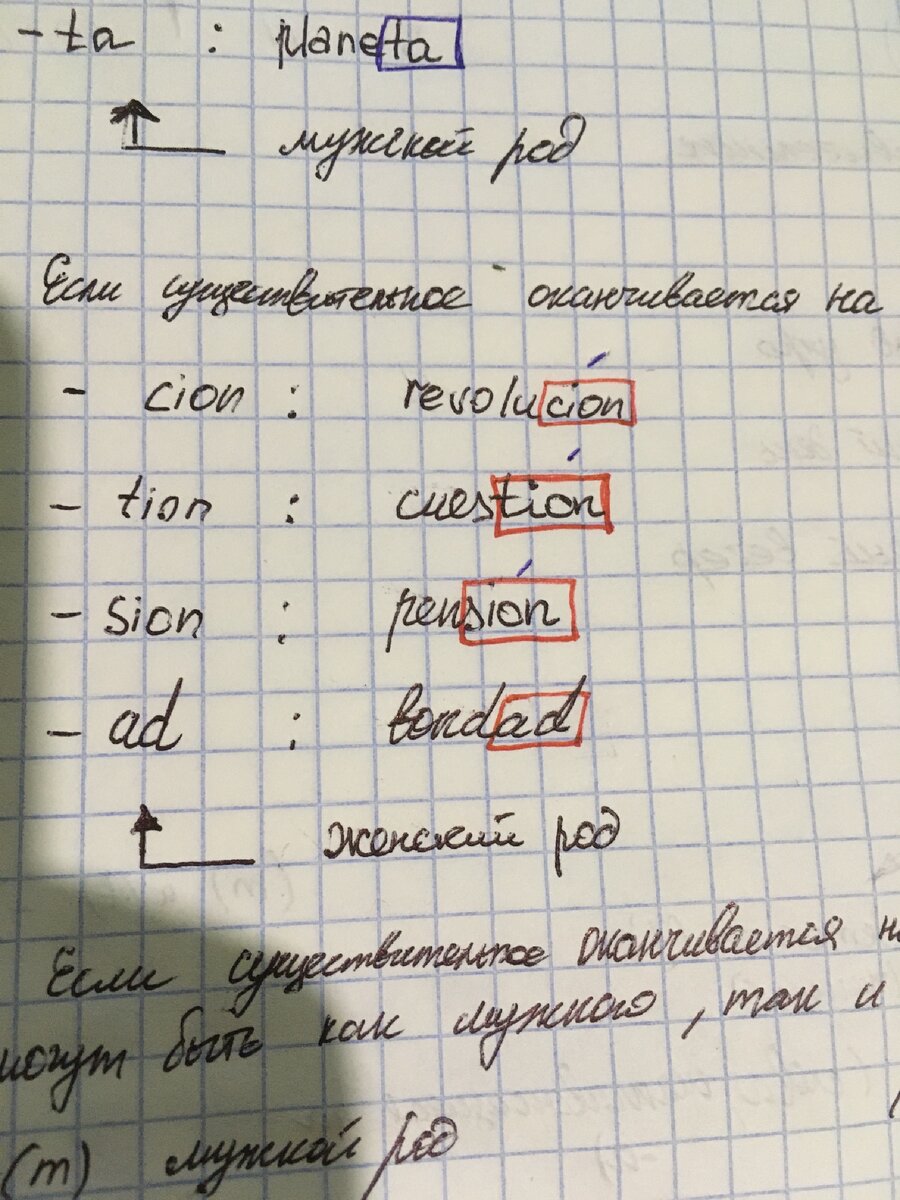 -ta : planeta
мужской род
Если существительное оканчивается на
- cion : revolución
- tion : cuestión
- sion : pensión
- ad : bondad
женский род
Если существительное оканчивается
могут быть как мужского, так и
(m) мужской род